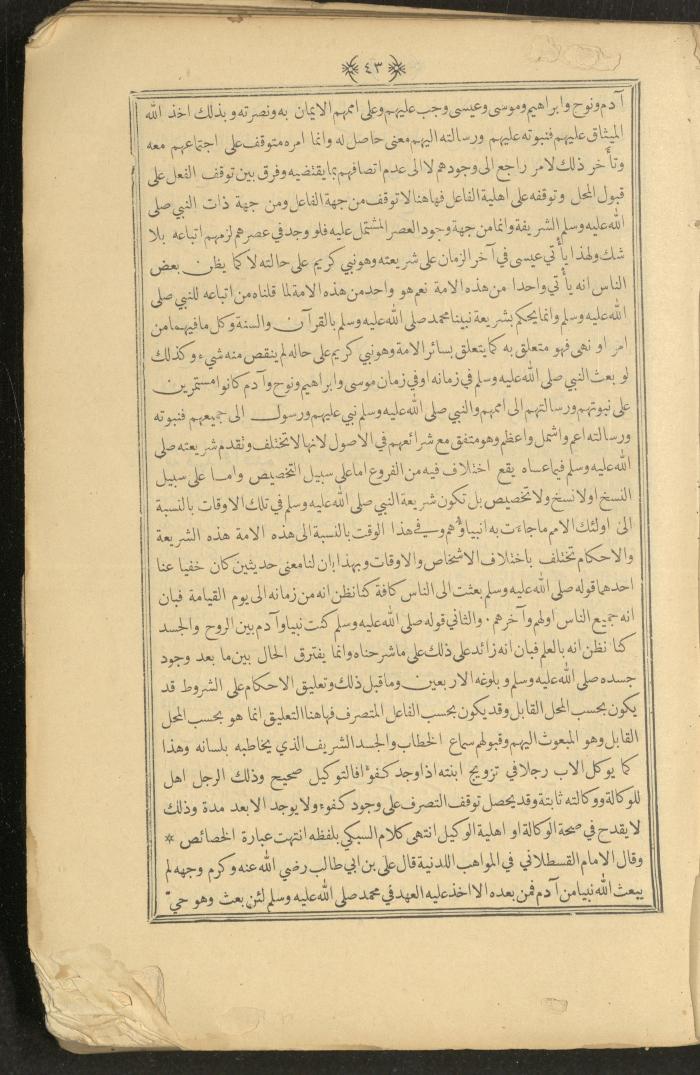 ٤٣
آدم ونوح وابراهيم وموسى وعيسى وجب عليهم وعلى اممهم الايمان به ونصرته وبذلك اخذ الله
الميثاق عليهم فنبوته عليهم ورسالته اليهم معنى حاصل له وانما امره متوقف على اجتماعهم معه
وتأخر ذلك لامر راجع الى وجودهم لا الى عدم اتصافهم بما يقتضيه وفرق بين توقف الفعل على
قبول المحل وتوقفه على اهلية الفاعل فهاهنا لا توقف من جهة الفاعل ومن جهة ذات النبي صلى
الله عليه وسلم الشريفة وانما من جهة وجود العصر المشتمل عليه فلو وجد في عصرهم لزمهم اتباعه بلا
شك ولهذا يأتي عيسى في آخر الزمان على شريعته وهو نبي كريم على حالته لا كما يظن بعض
الناس انه يأتي واحدا من هذه الامة نعم هو واحد من هذه الامة لما قلناه من اتباعه للنبي صلى
الله عليه وسلم وانما يحكم بشريعة نبينا محمد صلى الله عليه وسلم بالقرآن والسنة وكل ما فيهما من
امر او نهى فهو متعلق به كما يتعلق بسائر الامة وهو نبي كريم على حاله لم ينقص منه شيء وكذلك
لو بعث النبي صلى الله عليه وسلم في زمانه او في زمان موسى وابراهيم ونوح وآدم كانوا مستمرين
على نبوتهم ورسالتهم الى اممهم والنبي صلى الله عليه وسلم نبي عليهم ورسول الى جميعهم فنبوته
ورسالته اعم واشمل واعظم وهو متفق مع شرائعهم في الاصول لانها لا تختلف وتقدم شريعته صلى
الله عليه وسلم فيما عساه يقع اختلاف فيه من الفروع اما على سبيل التخصيص واما على سبيل
النسخ او لا نسخ ولا تخصيص بل تكون شريعة النبي صلى الله عليه وسلم في تلك الاوقات بالنسبة
الى اولئك الامم ما جاءت به انبياؤهم وفي هذا الوقت بالنسبة الى هذه الامة هذه الشريعة
والاحكام تختلف باختلاف الاشخاص والاوقات وبهذا بان لنا معنى حديثين كان خفيا عنا
احدهما قوله صلى الله عليه وسلم بعثت الى الناس كافة كنا نظن انه من زمانه الى يوم القيامة فبان
انه جميع الناس اولهم وآخرهم. والثاني قوله صلى الله عليه وسلم كنت نبيا وآدم بين الروح والجسد
كنا نظن انه بالعلم فبان انه زائد على ذلك على ما شرحناه وانما يفترق الحال بين ما بعد وجود
جسده صلى الله عليه وسلم وبلوغه الاربعين وما قبل ذلك وتعليق الاحكام على الشروط قد
يكون بحسب المحل القابل وقد يكون بحسب الفاعل المتصرف فهاهنا التعليق انما هو بحسب المحل
القابل وهو المبعوث اليهم وقبولهم سماع الخطاب والجسد الشريف الذي يخاطبه بلسانه وهذا
كما يوكل الاب رجلا في تزويج ابنته اذا وجد كفوءا فالتوكيل صحيح وذلك الرجل اهل
للوكالة ووكالته ثابتة وقد يحصل توقف التصرف على وجود كفوء ولا يوجد الا بعد مدة وذلك
لا يقدح في صحة الوكالة او اهلية الوكيل انتهى كلام السبكي بلفظه انتهت عبارة الخصائص *
وقال الامام القسطلاني في المواهب اللدنية قال علي بن ابي طالب رضي الله عنه وكرم وجهه لم
يبعث الله نبيا من آدم فمن بعده الا اخذ عليه العهد في محمد صلى الله عليه وسلم لئن بعث وهو حيّ